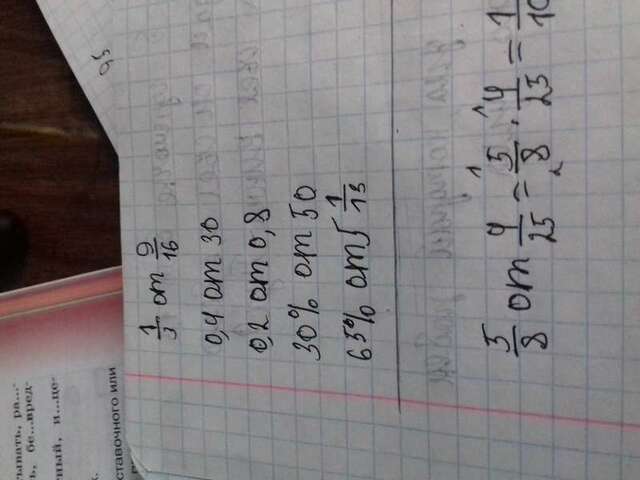 тывать, ра...-
ь, бе...вред-
ный, и...це-
ставочного или
95
1/3 от 9/16
0,4 от 30
0,2 от 0,8
30% от 50
65% от 5 1/13
5/8 от 4/25 = 5/8 · 4/25 = 1/10